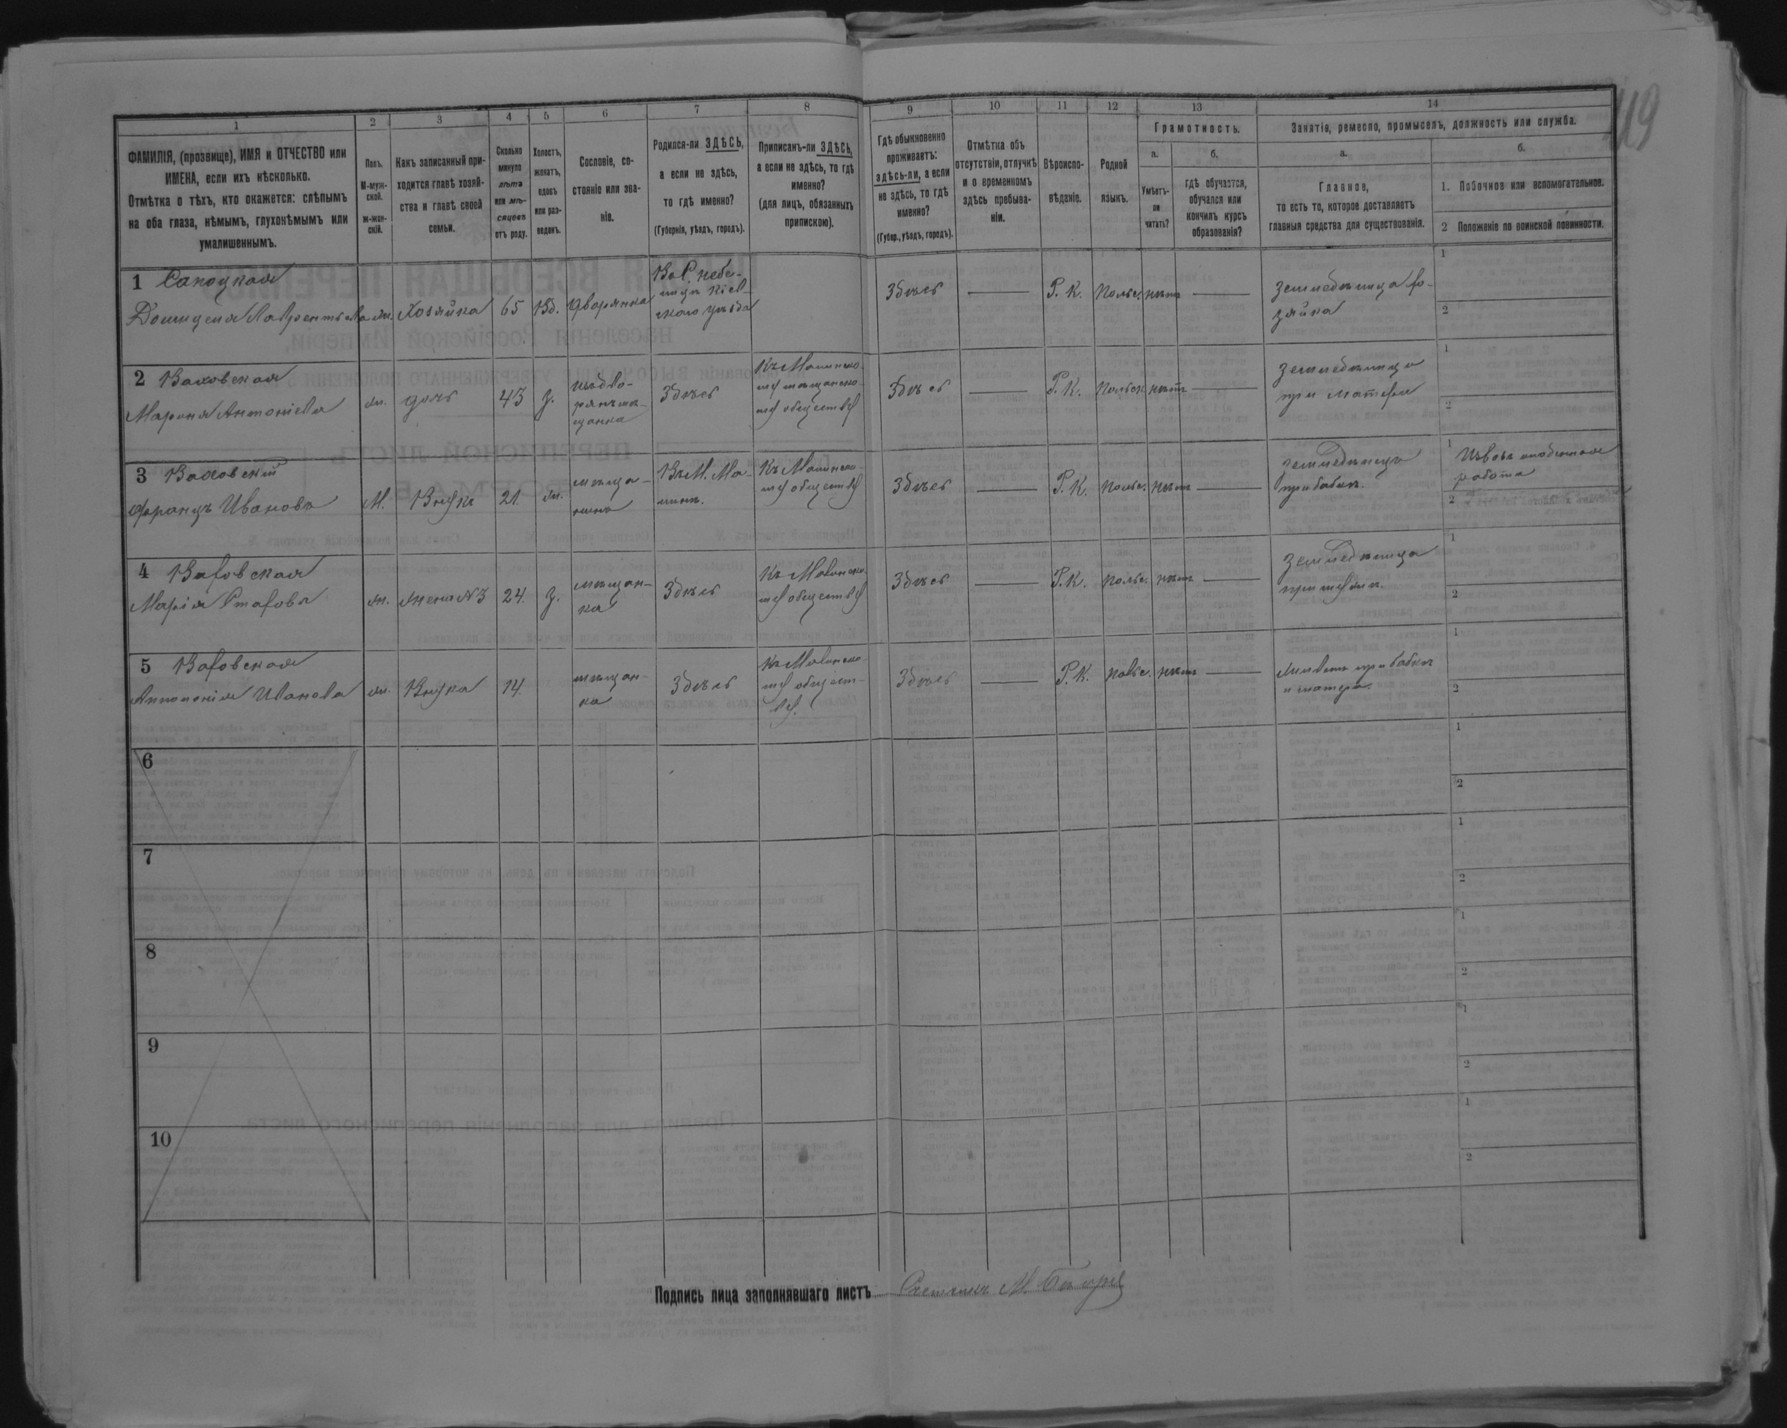 119
1 2 3 4 5 6 7 8 9 10 11 12 13 14
ФАМИЛІЯ, (прозвище), ИМЯ и ОТЧЕСТВО или
ИМЕНА, если ихъ нѣсколько.
Отмѣтка о тѣхъ, кто окажется: слѣпымъ
на оба глаза, нѣмымъ, глухонѣмымъ или
умалишеннымъ.
Полъ.
М-муж-
ской.
Ж-жен-
скій.
Какъ записанный при-
ходится главѣ хозяй-
ства и главѣ своей
семьи.
Сколько
минуло
лѣтъ
или мѣ-
сяцевъ
отъ роду.
Холостъ,
женатъ,
вдовъ
или раз-
веденъ.
Сословіе, со-
стояніе или зва-
ніе.
Родился-ли ЗДѢСЬ,
а если не здѣсь,
то гдѣ именно?
(Губернія, уѣздъ, городъ).
Приписанъ-ли ЗДѢСЬ,
а если не здѣсь, то гдѣ
именно?
(для лицъ, обязанныхъ
припискою).
Гдѣ обыкновенно
проживаетъ:
здѣсь-ли, а если
не здѣсь, то гдѣ
именно?
(Губер., уѣздъ, городъ).
Отмѣтка объ
отсутствіи, отлучкѣ
и о временномъ
здѣсь пребыва-
ніи.
Вѣроиспо-
вѣданіе.
Родной
языкъ.
Грамотность.
а. б.
Умѣетъ-
ли
читать?
гдѣ обучается,
обучался или
кончилъ курсъ
образованія?
Занятіе, ремесло, промыселъ, должность или служба.
а.
Главное,
то есть то, которое доставляетъ
главныя средства для существованія.
б.
1. Побочное или вспомогательное.
2 Положеніе по воинской повинности.
1 Сапоцкая
Домицеля Лаврентьева ж. Хозяйка 65 Вд. дворянка
Здѣсь Р. К. Польс. нѣтъ
земледѣлица хо-
зяйка
1
2
2 Ваховская
Мар
Антоніева ж. дочь 43 з.
Здѣсь
Къ Малинско-
му мѣщанско-
му обществу
Здѣсь Р. К. польск. нѣтъ
земледѣлица
при матери
1
2
3 Ваховскій
Францъ Ивановъ М. Внукъ 21 ж. мѣща-
нинъ
Въ М. Ма-
линѣ.
Къ Малинско-
му обществу
Здѣсь Р. К. польс. нѣтъ
земледѣлецъ
при бабкѣ.
1
работа
2
4 Ваховская
Марія ж. жена №3 24. з. мѣщан-
ка
Здѣсь
Къ Малинско-
му обществу
Здѣсь Р. К. польс. нѣтъ
земледѣлица
при мужѣ.
1
2
5 Ваховская
Антонія Иванова ж. Внука 14 мѣщан-
ка
Здѣсь
Къ Малинско-
му общест-
ву.
Здѣсь Р. К. польс. нѣтъ
при бабкѣ
и матери
1
2
6
1
2
7
1
2
8
1
2
9
1
2
10
1
2
Подпись лица заполнявшаго листъ